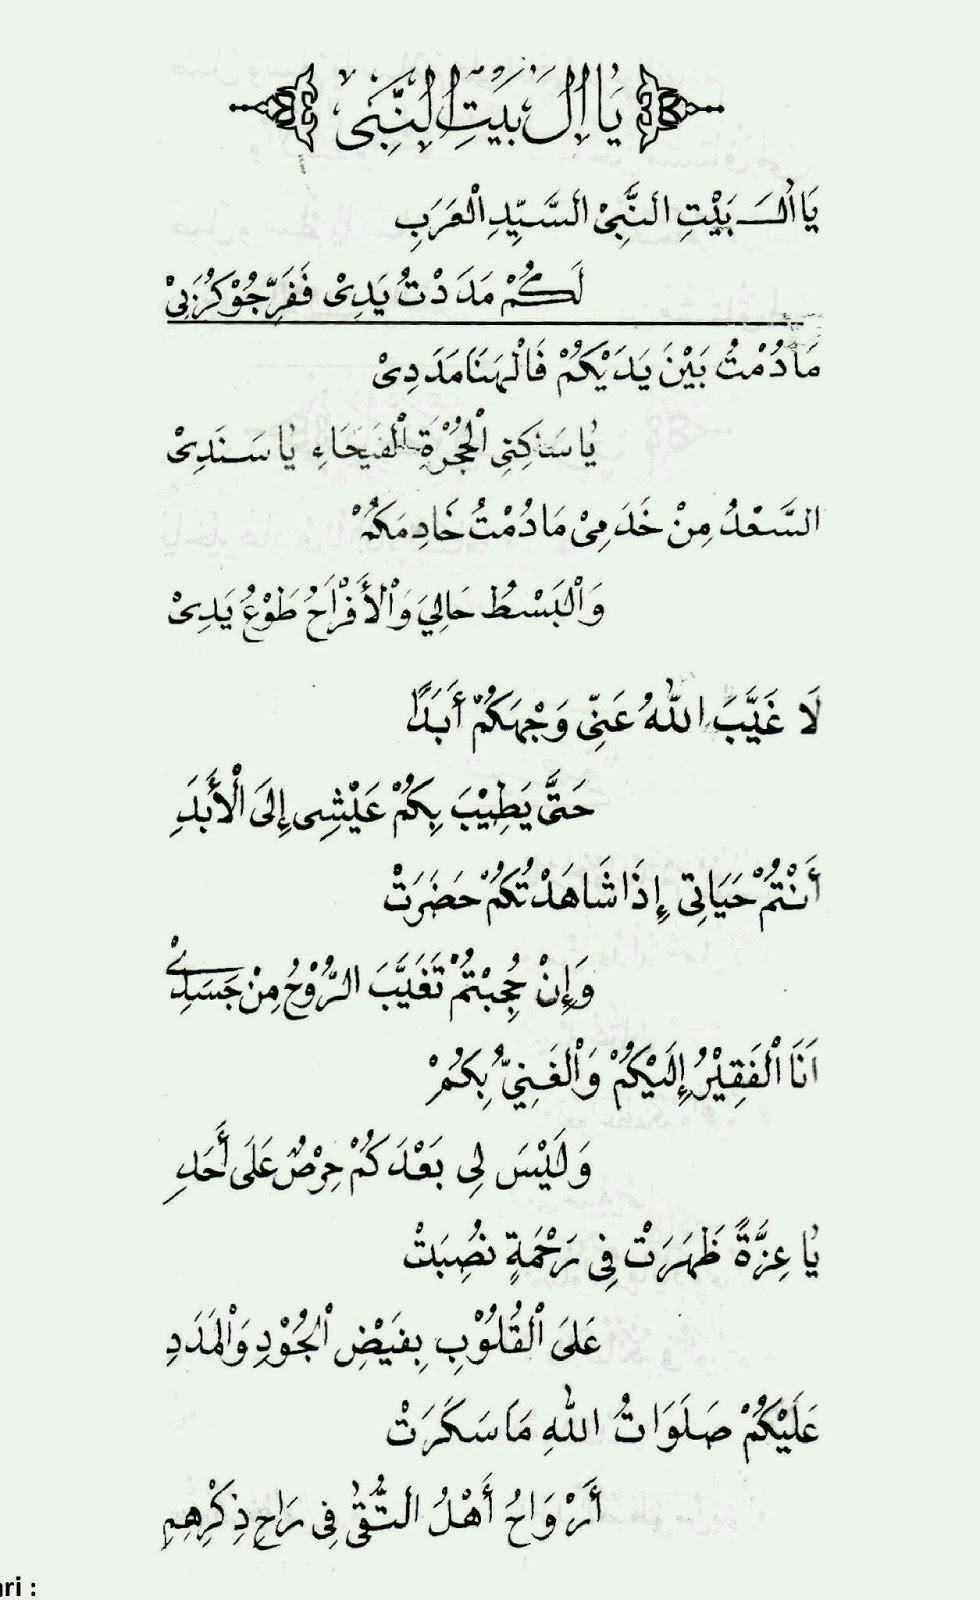 يَا اٰلَ بَيْتِ النَّبِى
يَا اٰلَ بَيْتِ النَّبِىْ السَّيِّدِ الْعَرَبِ
لَكُمْ مَدَدْتُ يَدِىْ فَفَرِّجُوْ كُرَبِىْ
مَا دُمْتُ بَيْنَ يَدَيْكُمْ فَالْهَنَا مَدَدِىْ
يَا سَاكِنِى الْحُجْرَةِ الْفَيْحَاءِ يَا سَنَدِىْ
السَّعْدُ مِنْ خَدَمِىْ مَا دُمْتُ خَادِمَكُمْ
وَالْبَسْطُ حَالِيَ وَالْأَفْرَاحُ طَوْعُ يَدِىْ
لَا غَيَّبَ اللهُ عَنِّى وَجْهَكُمْ أَبَدًا
حَتَّى يَطِيْبَ بِكُمْ عَيْشِى إِلَى الْأَبَدِ
أَنْتُمْ حَيَاتِى إِذَا شَاهَدْتُكُمْ حَضَرَتْ
وَإِنْ حُجِبْتُمْ تَغَيَّبَ الرُّوْحُ مِنْ جَسَدِىْ
اَنَا الْفَقِيْرُ إِلَيْكُمْ وَالْغَنِيُّ بِكُمْ
وَلَيْسَ لِى بَعْدَكُمْ حِرْصٌ عَلَى أَحَدِ
يَا عِزَّةً ظَهَرَتْ فِى رَحْمَةٍ نُصِبَتْ
عَلَى الْقُلُوْبِ بِفَيْضِ الْجُوْدِ وَالْمَدَدِ
عَلَيْكُمْ صَلَوَاتُ اللهِ مَا سَكَرَتْ
أَرْوَاحُ أَهْلُ التُّقٰى فِى رَاحِ ذِكْرِهِمِ
ari :